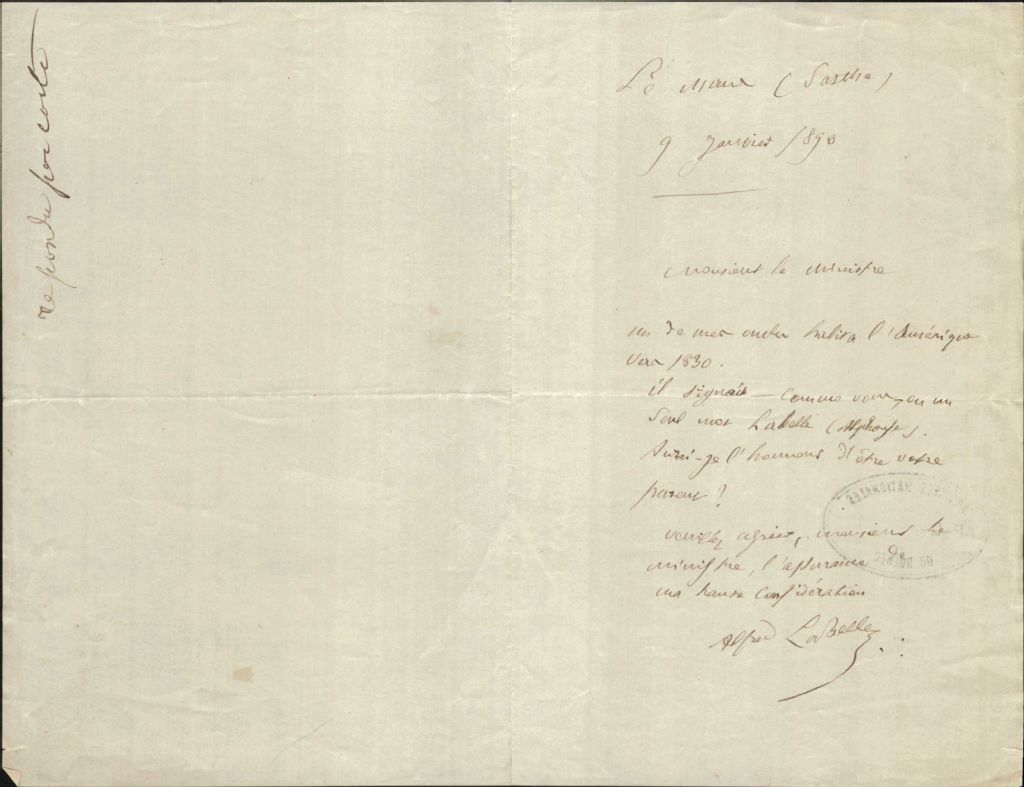 répondu par carte
Le Mans (Sarthe)
9 Janvier 1890
Monsieur le Ministre
un de mes oncles habita l'Amérique
vers 1830.
il signait – comme vous – en un
seul mot Labelle (Alphonse).
Aurai-je l'honneur d'être votre
parent ?
veuillez agréer, monsieur le
ministre, l'assurance de
ma haute considération
Alfred LaBelle
ARCHIVES NATIONALES
DU QUÉBEC